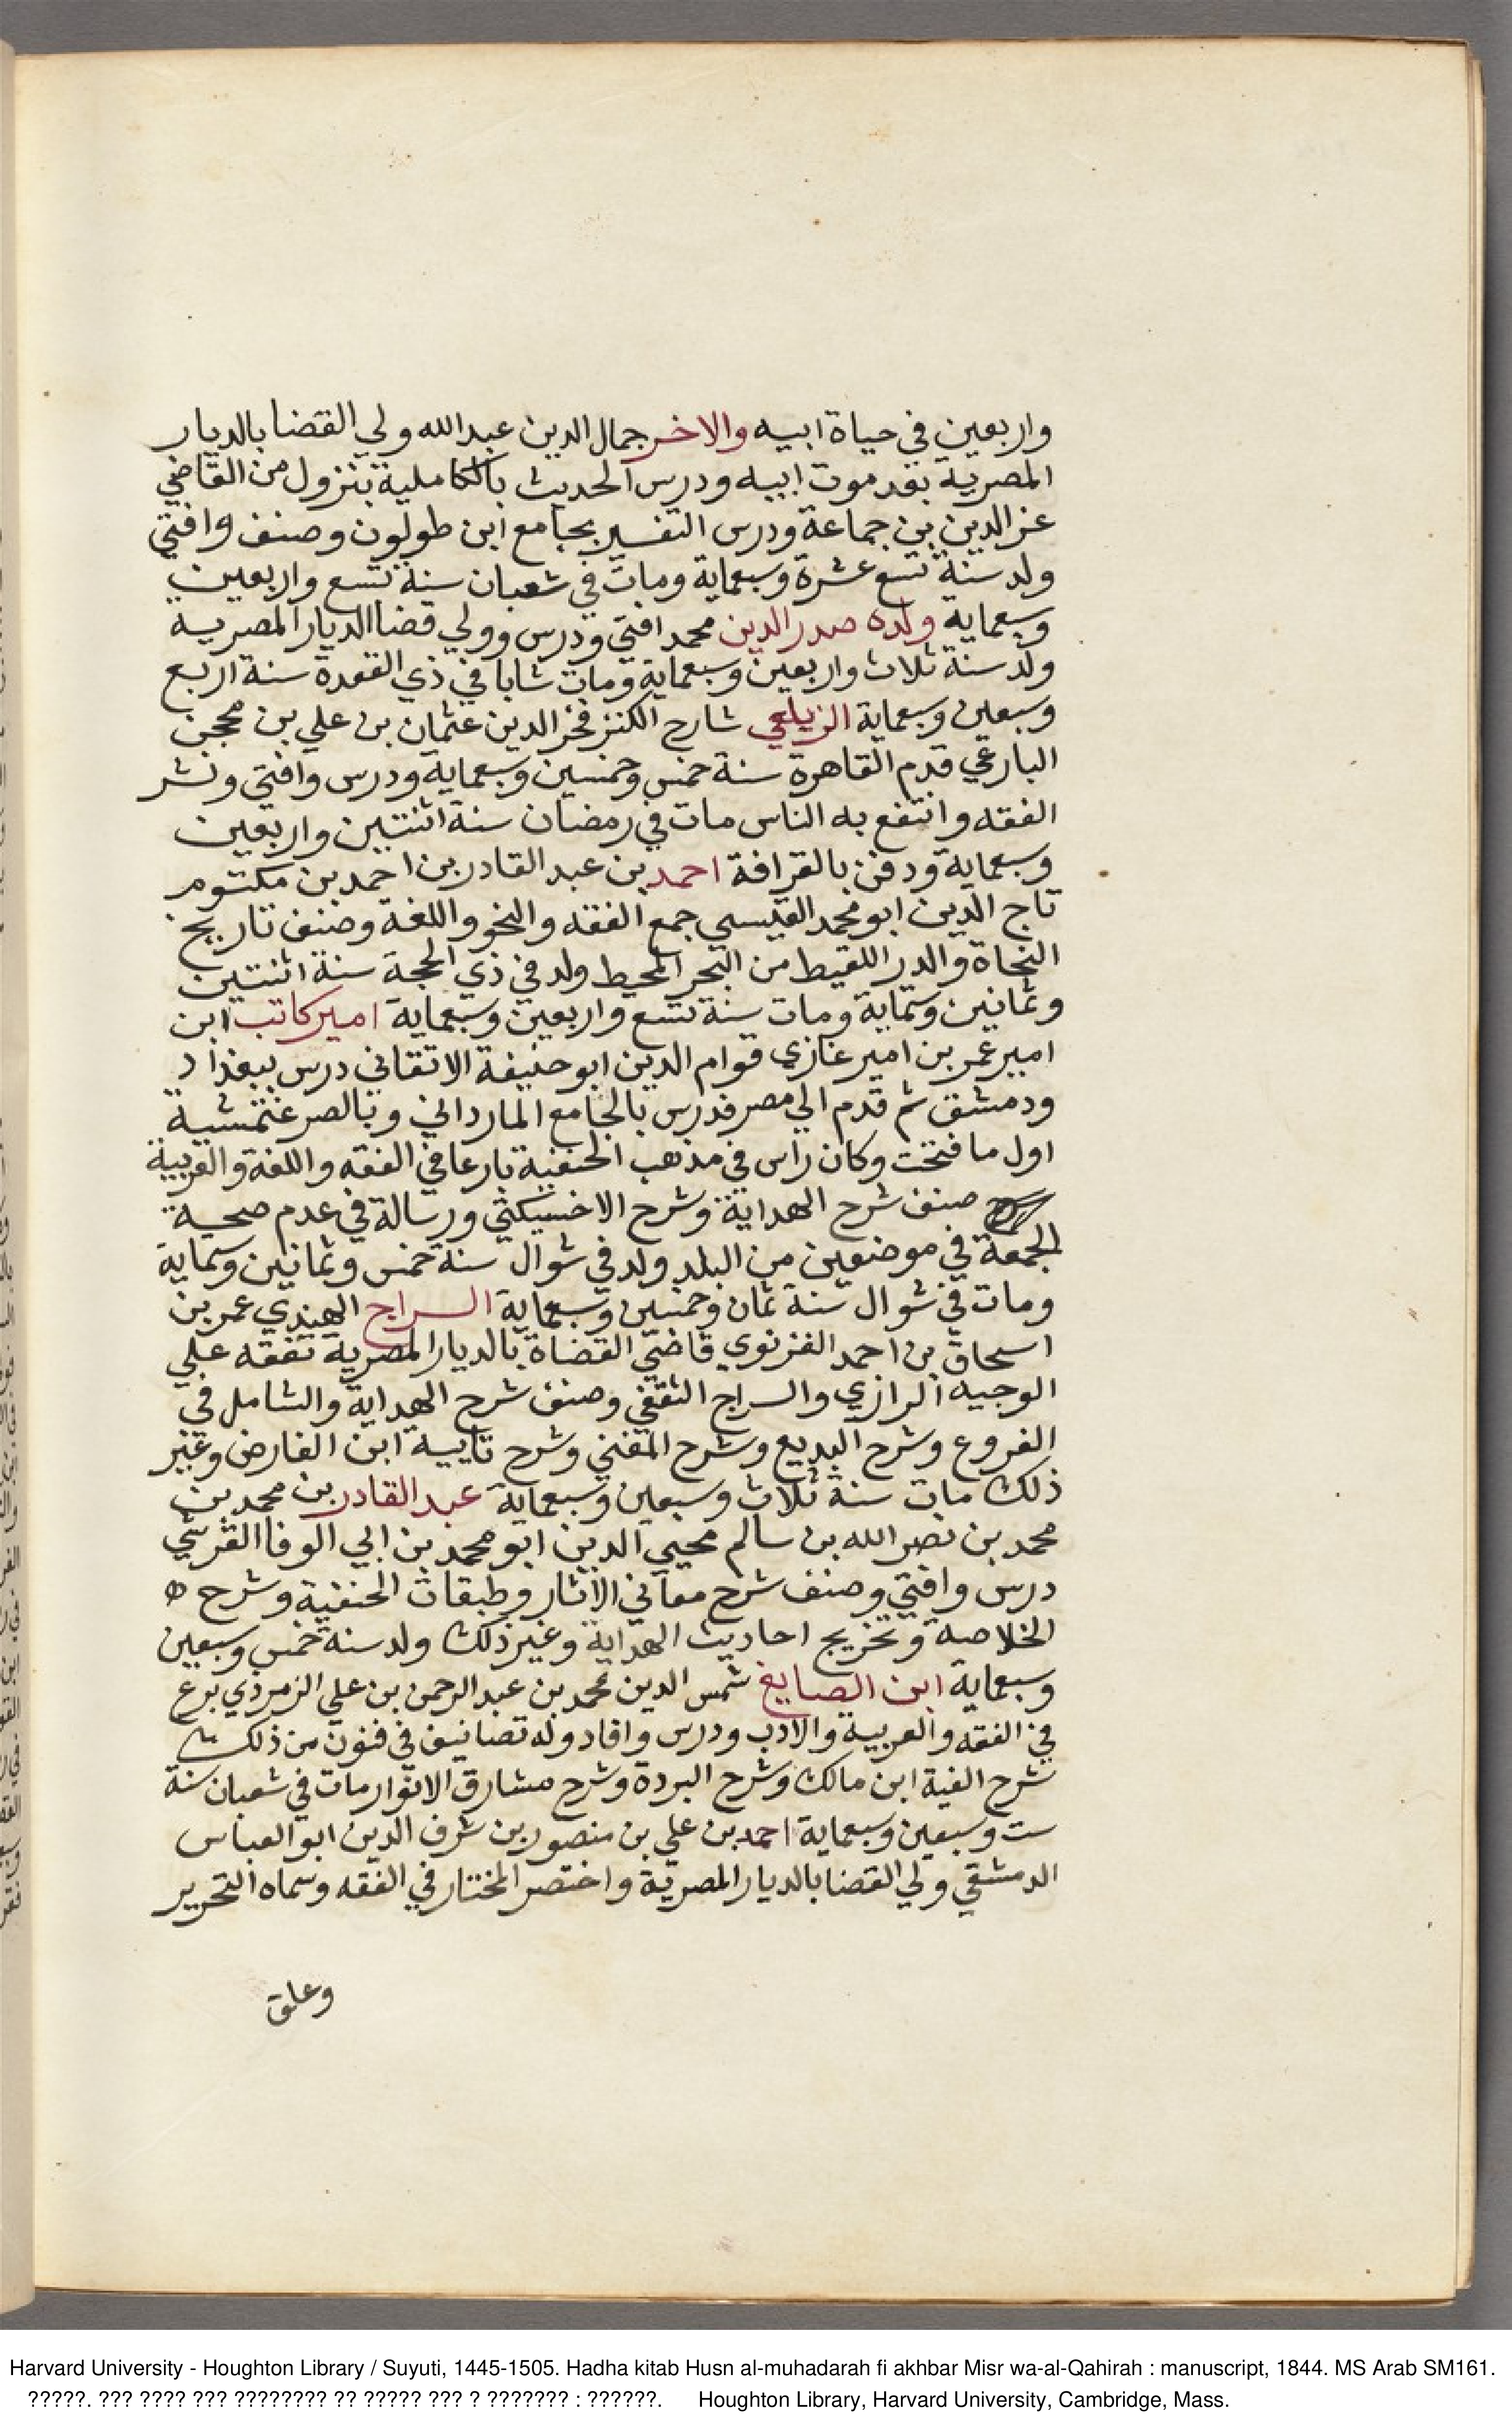 واربعين في حياة ابيه والاخر جمال الدين عبد الله ولي القضا بالديار
المصرية بعد موت ابيه ودرس الحديث بالكاملية بنزول من القاضي
عز الدين بن جماعة ودرس التفسير بجامع ابن طولون وصنف وافتي
ولد سنة تسع عشرة وسبعماية ومات في شعبان سنة تسع واربعين
وسبعماية ولده صدر الدين محمد افتي ودرس وولي قضا الديار المصرية
ولد سنة ثلاث واربعين وسبعماية ومات شابا في ذي القعدة سنة اربع
وسبعين وسبعماية الزيلعي شارح الكنز فخر الدين عثمان بن علي بن محجن
البارعي قدم القاهرة سنة خمس وخمسين وسبعماية ودرس وافتي ونشر
الفقه وانتفع به الناس مات في رمضان سنة اثنتين واربعين
وسبعماية ودفن بالقرافة احمد بن عبد القادر بن احمد بن مكتوم
تاج الدين ابو محمد القيسي جمع الفقه والنحو واللغة وصنف تاريخ
النحاة والدر اللقيط من البحر المحيط ولد في ذي الحجة سنة اثنتين
وثمانين وستماية ومات سنة تسع واربعين وسبعماية امير كاتب ابن
امير عمر بن امير غازي قوام الدين ابو حنيفة الاتقاني درس ببغداد
ودمشق ثم قدم الي مصر فدرس بالجامع المارداني وبالصرغتمشية
اول ما فتحت وكان راس في مذهب الحنفية بارعا في الفقه واللغة والعربية
صنف شرح الهداية وشرح الاخسيكثي ورسالة في عدم صحة
الجمعة في موضعين من البلد ولد في شوال سنة خمس وثمانين وستماية
ومات في شوال سنة ثمان وخمسين وسبعماية السراج الهندي عمر بن
اسحاق بن احمد الغزنوي قاضي القضاة بالديار المصرية تفقه علي
الوجيه الرازي والسراج الثقفي وصنف شرح الهداية والشامل في
الفروع وشرح البديع وشرح المغني وشرح تاييه ابن الفارض وغير
ذلك مات سنة ثلاث وسبعين وسبعماية عبد القادر بن محمد بن
محمد بن نصر الله بن سالم محيي الدين ابو محمد بن ابي الوفا القرشي
درس وافتي وصنف شرح معاني الاثار وطبقات الحنفية وشرح
الخلاصة وتخريج احاديث الهداية وغير ذلك ولد سنة خمس وسبعين
وسبعماية ابن الصايغ شمس الدين محمد بن عبد الرحمن بن علي الزمرذي برع
في الفقه والعربية والادب ودرس وافاد وله تصانيف في فنون من ذلك
شرح الفية ابن مالك وشرح البردة وشرح مشارق الانوار مات في شعبان سنة
ست وسبعين وسبعماية احمد بن علي بن منصور بن شرف الدين ابو العباس
الدمشقي ولي القضا بالديار المصرية واختصر المختار في الفقه وسماه التحرير
وعلق
Harvard University - Houghton Library / Suyuti, 1445-1505. Hadha kitab Husn al-muhadarah fi akhbar Misr wa-al-Qahirah : manuscript, 1844. MS Arab SM161.
?????. ??? ???? ??? ???????? ?? ????? ??? ? ??????? : ??????. Houghton Library, Harvard University, Cambridge, Mass.